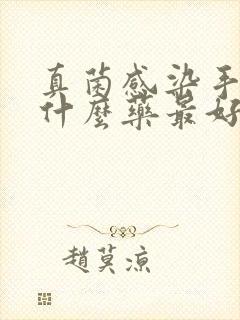 真菌感染手
什麼藥最好
趙莫涼